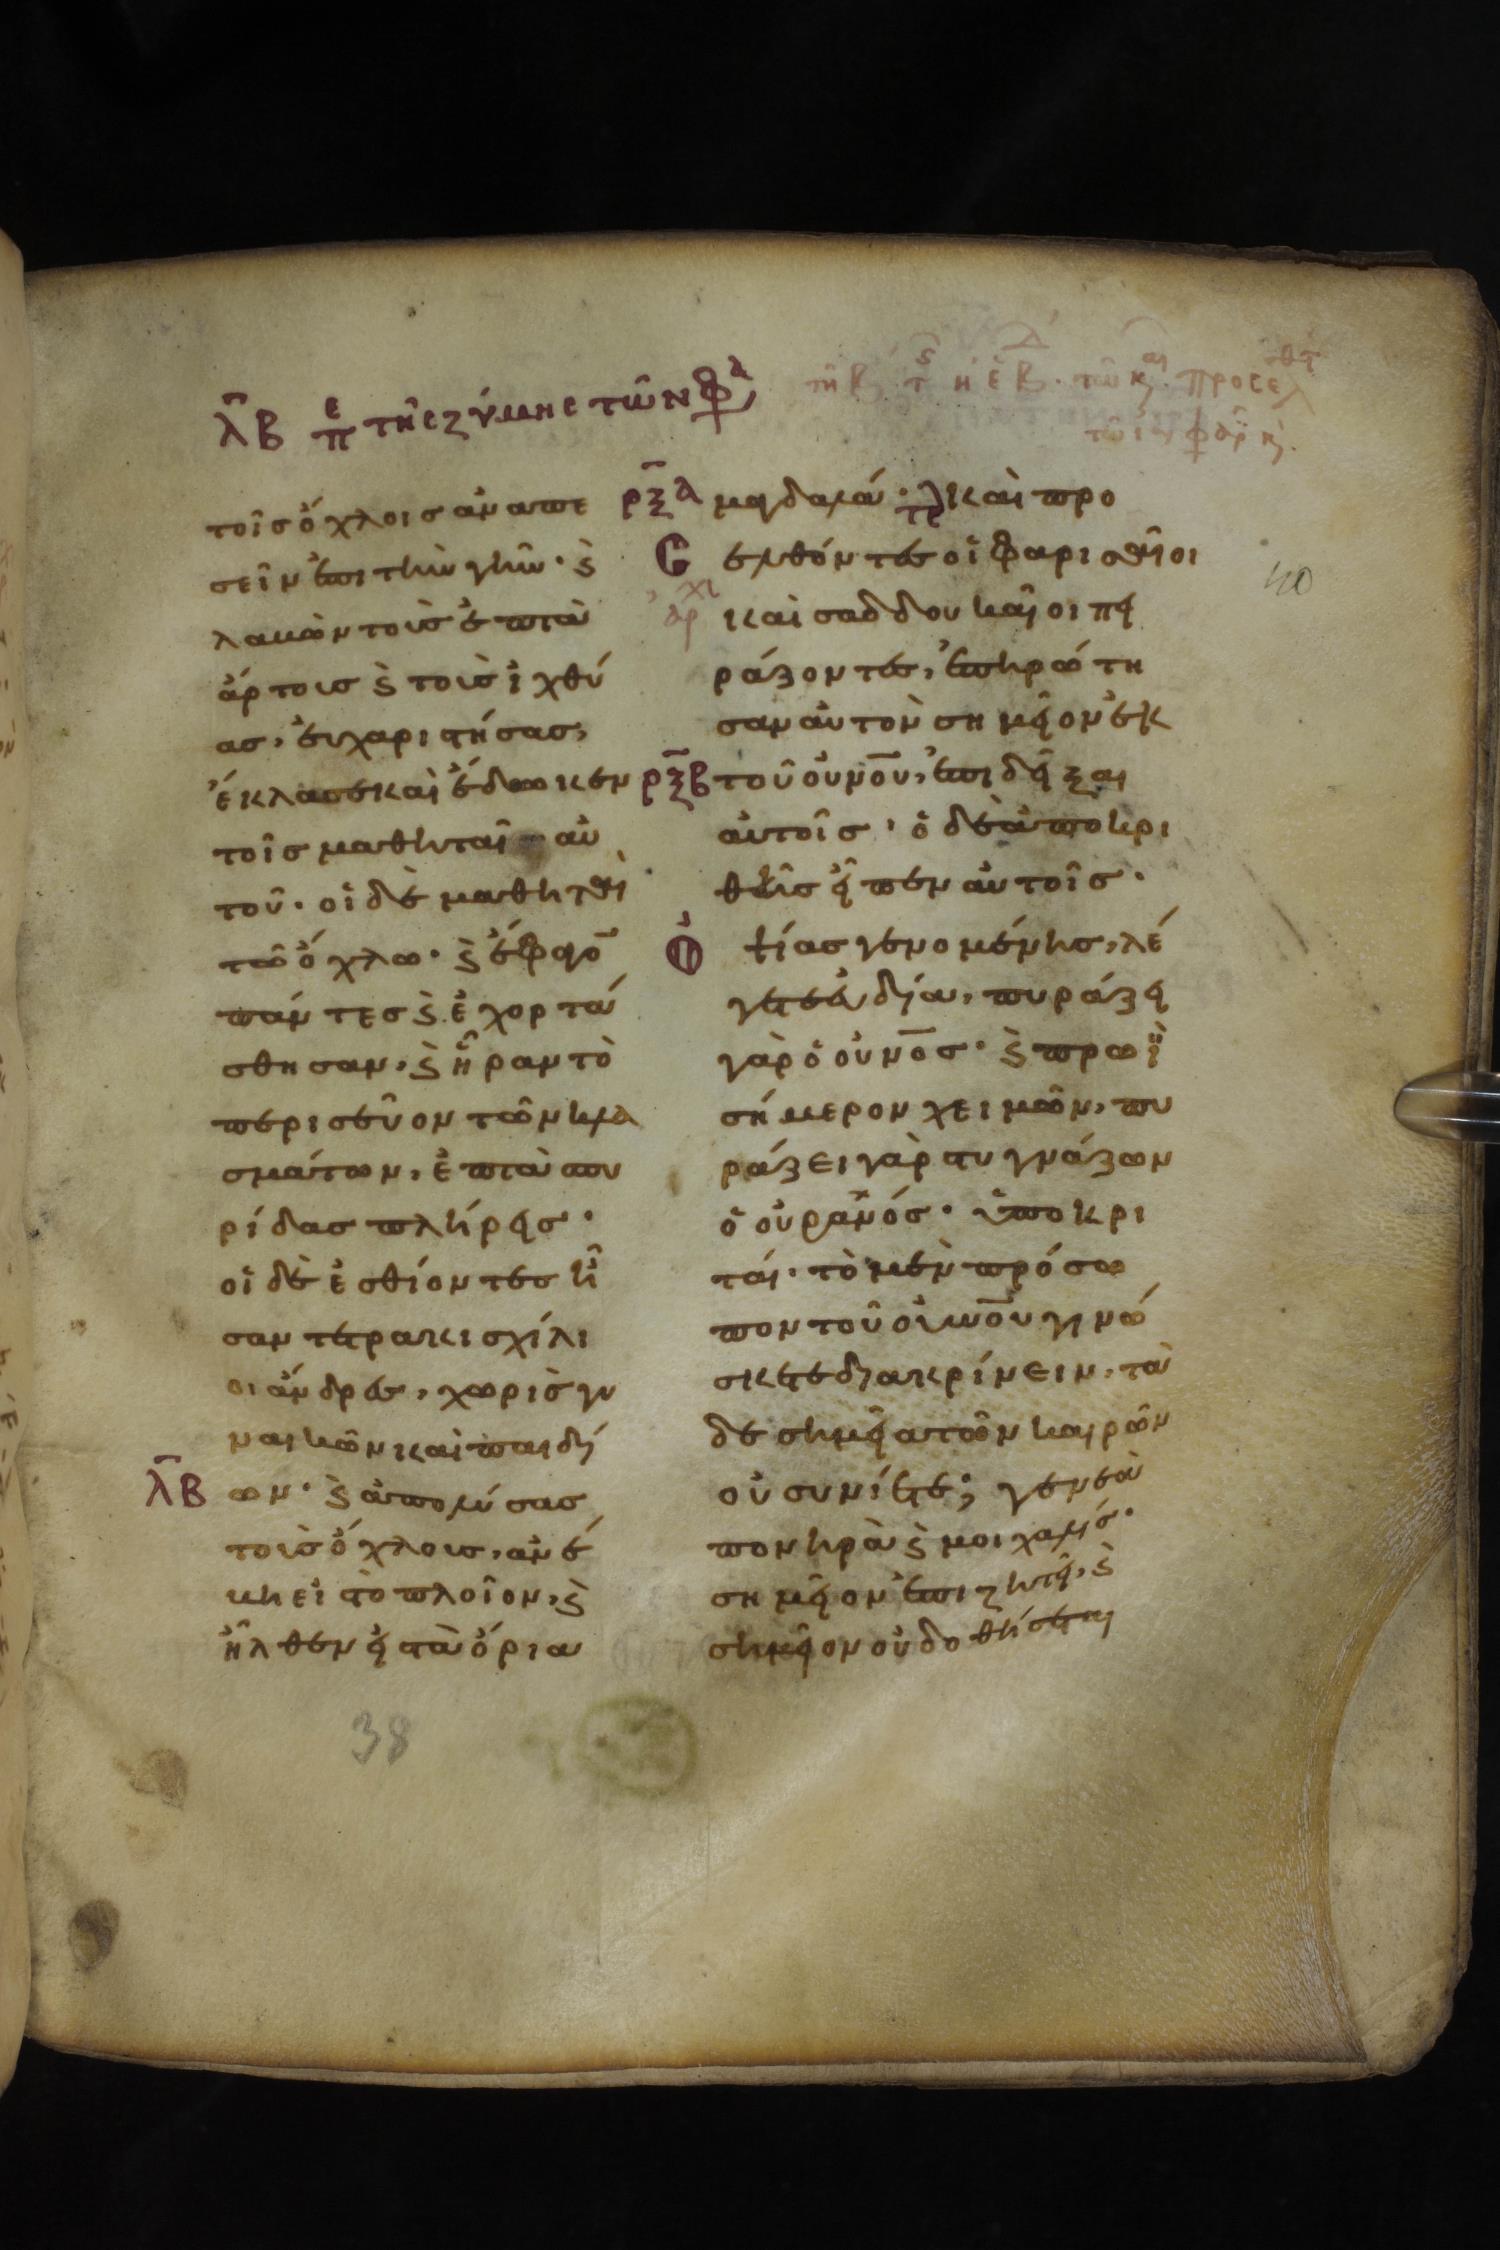 λβ περ τῆς ζύμης τῶν φα
τοῖς ὄχλοις ἀναπε
σεῖν ἐπι τὴν γῆν· ϗ
λαβὼν τοὺς ἑπτὰ
ἄρτους ϗ τοὺς ἰχθύ
ας, εὐχαριστήσας,
ἔκλασε καὶ ἔδωκεν
τοῖς μαθηταῖς αὐ
τοῦ· οἱ δὲ μαθηταὶ
τῶ ὄχλω· ϗ ἔφαγο̅
πάντες ϗ ἐχορτά
σθησαν, ϗ ἦραν τὸ
περισεῦον τῶν κλα
σμάτων, ἑπτὰ σπυ
ρίδας πλήρεις·
οἱ δὲ ἐσθίοντες ἦ
σαν τετρακισχίλι
οι ἄνδρες, χωρὶς γυ
ναικῶν καὶ παιδί
λβ ων· ϗ ἀπολύσας
τοὺς ὄχλους, ἀνέ
βη εἰς τὸ πλοῖον, ϗ
ἦλθεν εἰς τὰ ὅρια
ρξα μαγδαλά· καὶ προ
ς ελθόντες οἱ φαρισαῖοι
καὶ σαδδουκαῖοι πει
ράζοντες, ἐπηρώτη
σαν αὐτὸν σημεῖον ἐκ
ρξβ τοῦ οὐνο̅υ, ἐπιδεῖξαι
αὐτοῖς· ὁ δὲ ἀποκρι
θεὶς εἶπεν αὐτοῖς·
Ὀψίας γενομένης, λέ
γετε εὐδία, πυράζει
γὰρ ὁ οὐνο̅ς· ϗ πρωῒ
σήμερον χειμών, πυ
ράζει γὰρ στυγνάζων
ὁ οὐρανός· ὑποκρι
ταί· τὸ μὲν πρόσω
πον τοῦ οὐνο̅υ γινώ
σκετε διακρίνειν, τὰ
δὲ σημεῖα τῶν καιρῶν
οὐ συνίετε; γενεὰ
πονηρὰ ϗ μοιχαλίς·
σημεῖον ἐπιζητεῖ, ϗ
σημεῖον οὐ δοθήσεται
40
38